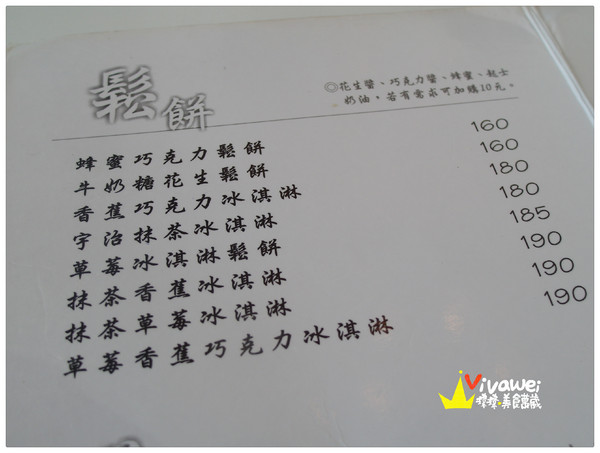 鬆餅
◎花生醬、巧克力醬、蜂蜜、起士
奶油，若有需求可加購10元。
蜂蜜巧克力鬆餅 160
牛奶糖花生鬆餅 160
香蕉巧克力冰淇淋 180
宇治抹茶冰淇淋 180
草莓冰淇淋鬆餅 185
抹茶香蕉冰淇淋 190
抹茶草莓冰淇淋 190
草莓香蕉巧克力冰淇淋 190
Vivawei